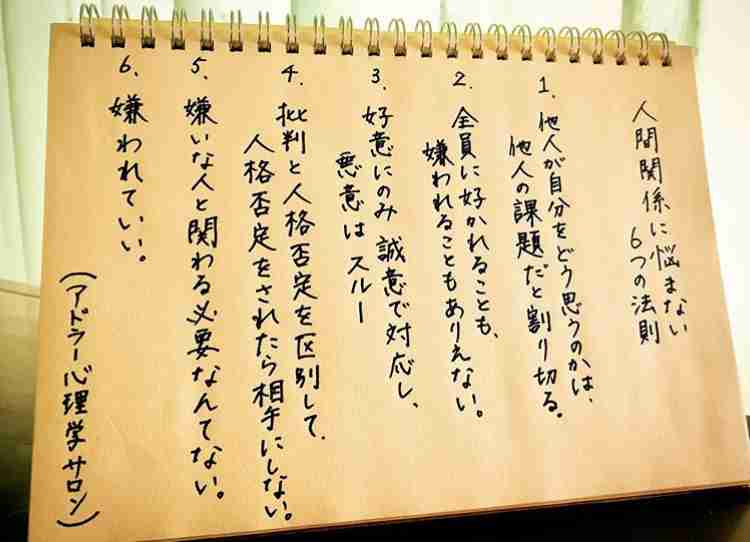 人間関係に悩まない
6つの法則
1. 他人が自分をどう思うのかは、
他人の課題だと割り切る。
2. 全員に好かれることも、
嫌われることもありえない。
3. 好意にのみ誠意で対応し、
悪意はスルー
4. 批判と人格否定を区別して、
人格否定をされたら相手にしない。
5. 嫌いな人と関わる必要なんてない。
6. 嫌われていい。
(アドラー心理学サロン)